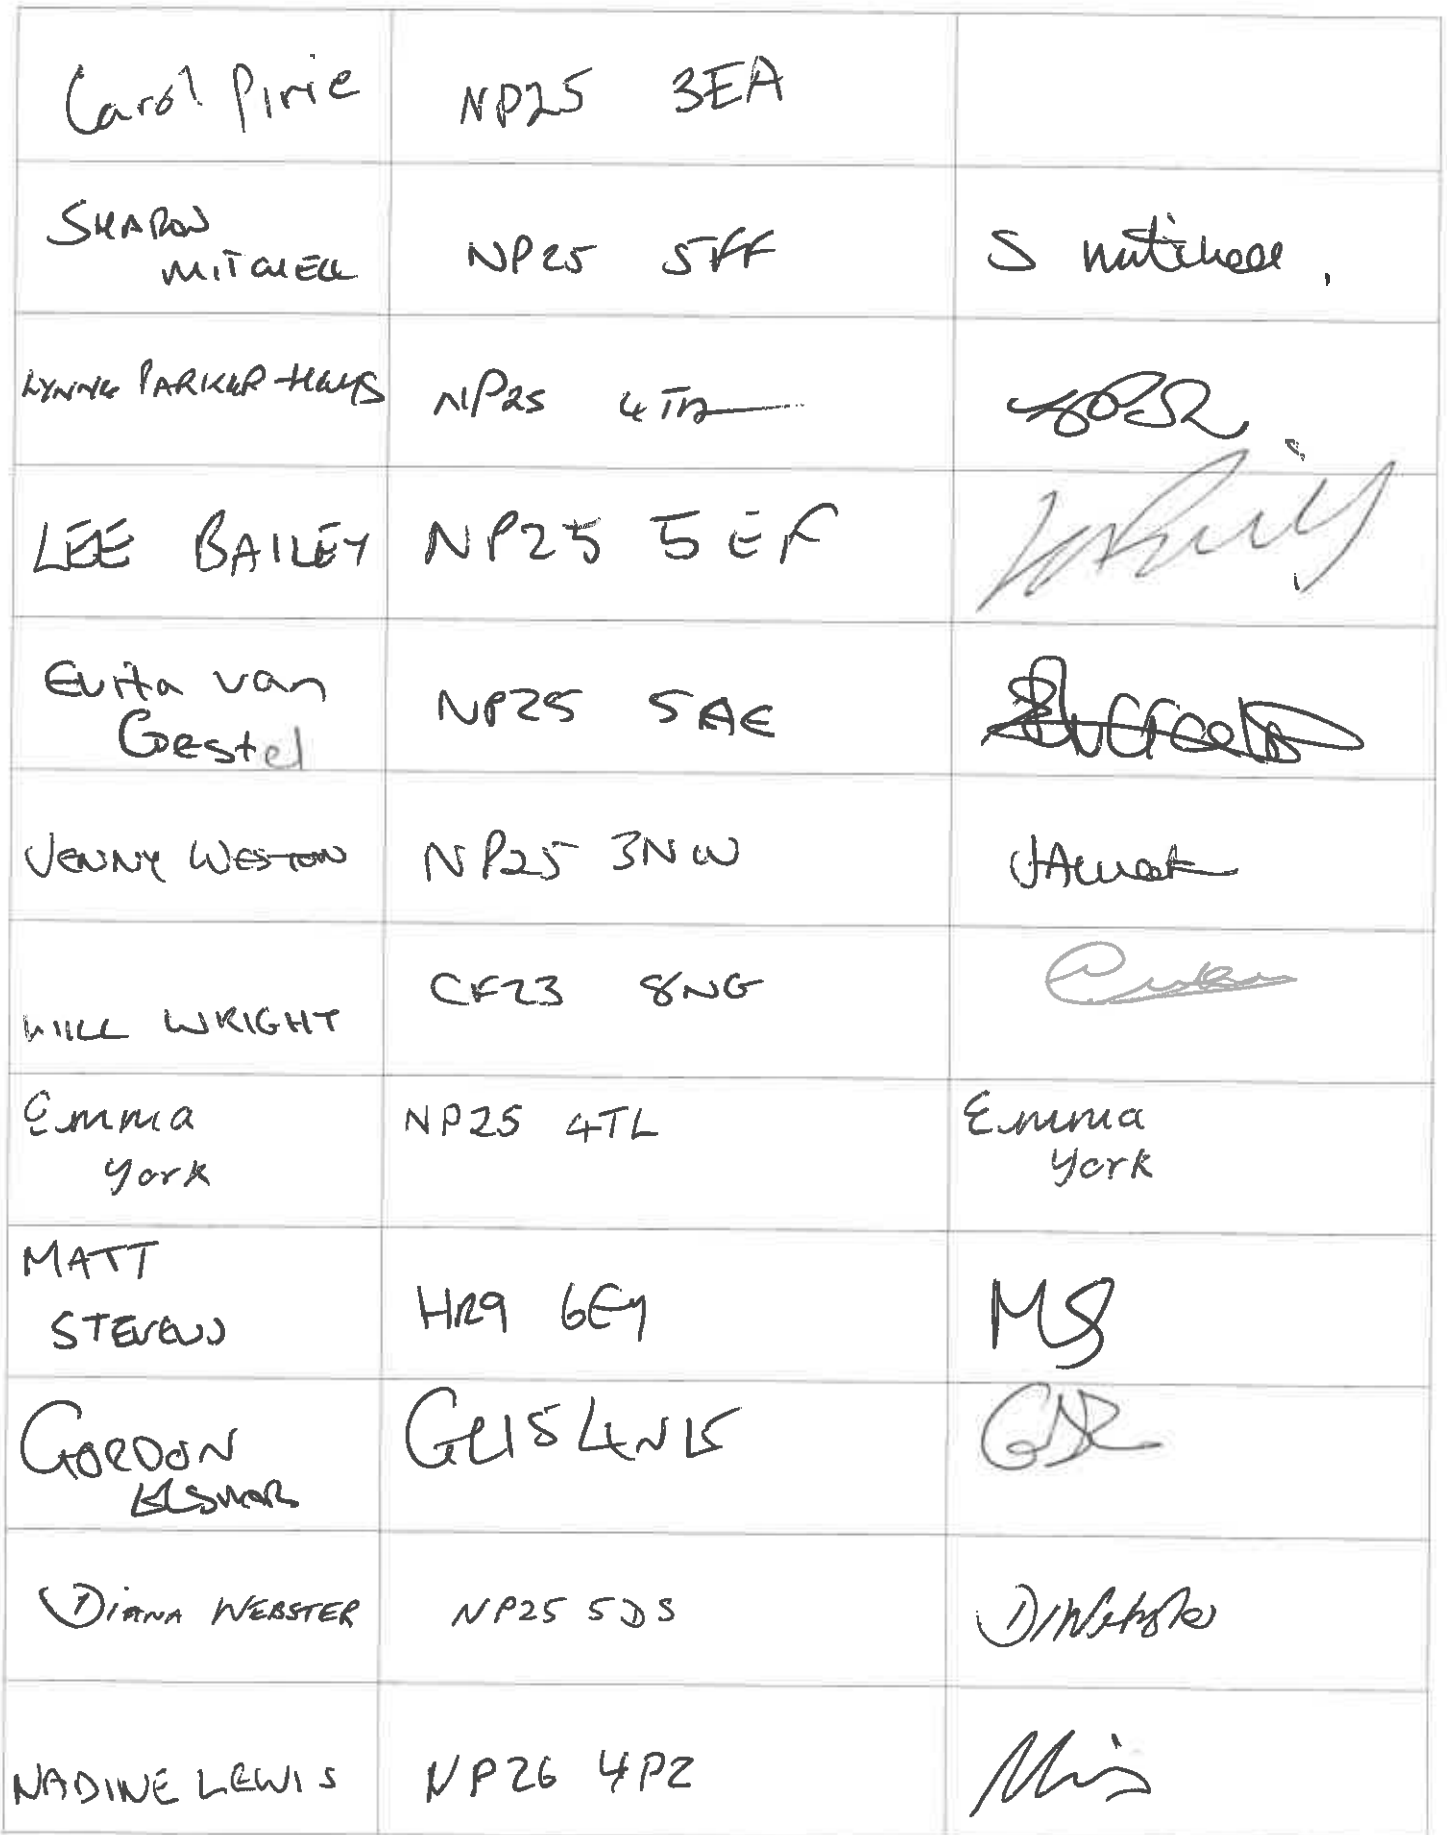 Carol Pirie NP25 3EA
SHARON
MITCHELL NP25 5FF S Mitchell.
LYNNE PARKER NP25
LEE BAILEY NP25 5EF
Evita van
Gestel NP25 5AE
JENNY WESTON NP25 3NW
WILL WRIGHT CF23 8NG
Emma
York NP25 4TL Emma
York
MATT
STEVENS HR9 6EY MS
GORDON
GL15
DIANA WEBSTER NP25 5DS
NADINE LEWIS NP26 4PZ